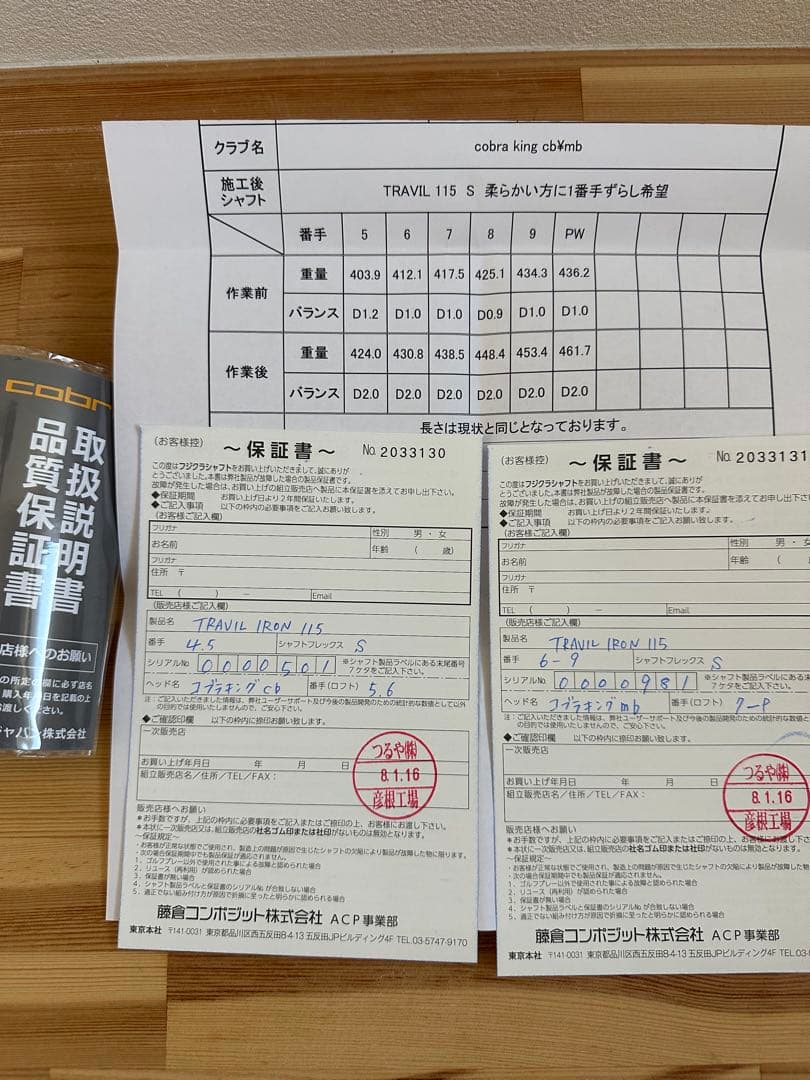 クラブ名 cobra king cb¥mb
施工後シャフト TRAVIL 115 S 柔らかい方に1番手ずらし希望
番手 5 6 7 8 9 PW
作業前 重量 403.9 412.1 417.5 425.1 434.3 436.2
バランス D1.2 D1.0 D1.0 D0.9 D1.0 D1.0
作業後 重量 424.0 430.8 438.5 448.4 453.4 461.7
バランス D2.0 D2.0 D2.0 D2.0 D2.0 D2.0
長さは現状と同じとなっております。
cobr
取扱説明書
品質保証書
店様へのお願い
の所定の欄に必ず店名
購入年月日を記載の上
お渡しください。
ジャパン株式会社
(お客様控)
～保証書～ No. 2033130
この度はフジクラシャフトをお買い上げいただきまして、誠にありが
とうございました。本書は弊社製品が故障した場合の製品保証書です。
故障が発生した場合は、お買い上げの組立販売店へ製品に本保証書を添えてお申し出下さい。
◆保証期間 お買い上げ日より2年間保証いたします。
◆ご記入事項 以下の枠内の必要事項をご記入お願い致します。
(お客様ご記入欄)
フリガナ
お名前
性別 男・女
年齢 ( 歳)
フリガナ
住所 〒
TEL ( ) － Email
(販売店様ご記入欄)
製品名 TRAVIL IRON 115
番手 4.5 シャフトフレックス S
シリアルNo 0000501 ※シャフト製品ラベルにある末尾番号7ケタをご記入下さい。
ヘッド名 コブラキングcb 番手(ロフト) 5.6
注:ご記入いただきました情報は、弊社ユーザーサポート及び今後の製品開発のための統計的な数値として以外
の目的では使用いたしませんので、ご安心下さい。
◆ご確認印欄 以下の枠内に捺印お願い致します。
一次販売店
お買い上げ年月日 年 月 日
組立販売店名／住所／TEL／FAX：
つるや㈱
8.1.16
彦根工場
販売店様へお願い
＊お手数ですが、上記の枠内に必要事項をご記入またはご捺印の上、お客様にお渡し下さい。
＊本状に一次販売店又は、組立販売店の社名ゴム印または社印がないものは無効となります。
～保証規定～
・お客様が正常な状態でご使用され、製造上の問題が原因で生じたシャフトの欠陥により製品が故障した物に限ります。
・次の場合保証期間中でも製品保証が適応されません。
1、ゴルフプレー以外で使用された事による故障と認められた場合
2、リユース(再利用)が認められた場合
3、保証書が無い場合
4、シャフト製品ラベルと保証書のシリアルNo.が合致しない場合
5、適正でない組み付け方が原因で折損に至ったと明らかに認められる場合
藤倉コンポジット株式会社 ACP事業部
東京本社 〒141-0031 東京都品川区西五反田8-4-13 五反田JPビルディング4F TEL.03-5747-9170
(お客様控)
～保証書～ No. 2033131
この度はフジクラシャフトをお買い上げいただきまして、誠にありが
とうございました。本書は弊社製品が故障した場合の製品保証書です。
故障が発生した場合は、お買い上げの組立販売店へ製品に本保証書を添えてお申し
◆保証期間 お買い上げ日より2年間保証いたします。
◆ご記入事項 以下の枠内の必要事項をご記入お願い致します。
(お客様ご記入欄)
フリガナ
お名前
性別 男・女
年齢 (
フリガナ
住所 〒
TEL ( ) － Email
(販売店様ご記入欄)
製品名 TRAVIL IRON 115
番手 6-9 シャフトフレックス S
シリアルNo 0000981 ※シャフト製品ラベルにある末尾番号7ケタをご記入下さい。
ヘッド名 コブラキングmb 番手(ロフト) 7-P
注:ご記入いただきました情報は、弊社ユーザーサポート及び今後の製品開発のための統計的な数値と
の目的では使用いたしませんので、ご安心下さい。
◆ご確認印欄 以下の枠内に捺印お願い致します。
一次販売店
お買い上げ年月日 年 月 日
組立販売店名／住所／TEL／FAX：
つるや㈱
8.1.16
彦根工場
販売店様へお願い
＊お手数ですが、上記の枠内に必要事項をご記入またはご捺印の上、お客様にお渡し下さい。
＊本状に一次販売店又は、組立販売店の社名ゴム印または社印がないものは無効となります。
～保証規定～
・お客様が正常な状態でご使用され、製造上の問題が原因で生じたシャフトの欠陥により製品が故障した物
・次の場合保証期間中でも製品保証が適応されません。
1、ゴルフプレー以外で使用された事による故障と認められた場合
2、リユース(再利用)が認められた場合
3、保証書が無い場合
4、シャフト製品ラベルと保証書のシリアルNo.が合致しない場合
5、適正でない組み付け方が原因で折損に至ったと明らかに認められる場合
藤倉コンポジット株式会社 ACP事業部
東京本社 〒141-0031 東京都品川区西五反田8-4-13 五反田JPビルディング4F TEL.03-